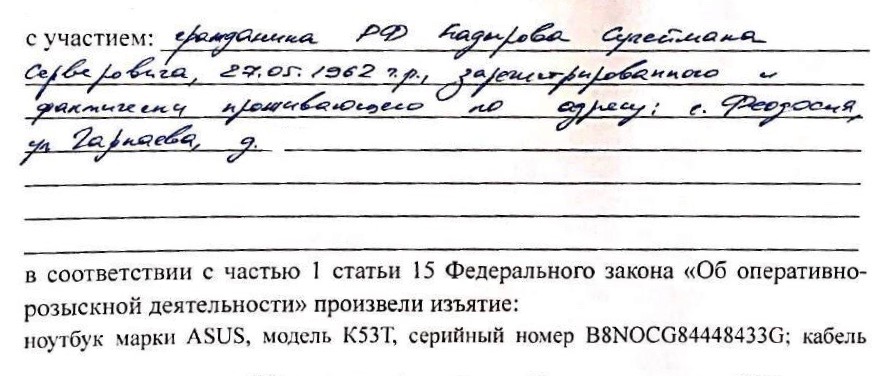 с участием: гражданина РФ Кадырова Сулеймана
Серверовича, 27.05.1962 г.р., зарегистрированного и
фактически проживающего по адресу: г. Феодосия,
ул Гарнаева, д.
в соответствии с частью 1 статьи 15 Федерального закона «Об оперативно-
розыскной деятельности» произвели изъятие:
ноутбук марки ASUS, модель K53T, серийный номер B8NOCG84448433G; кабель